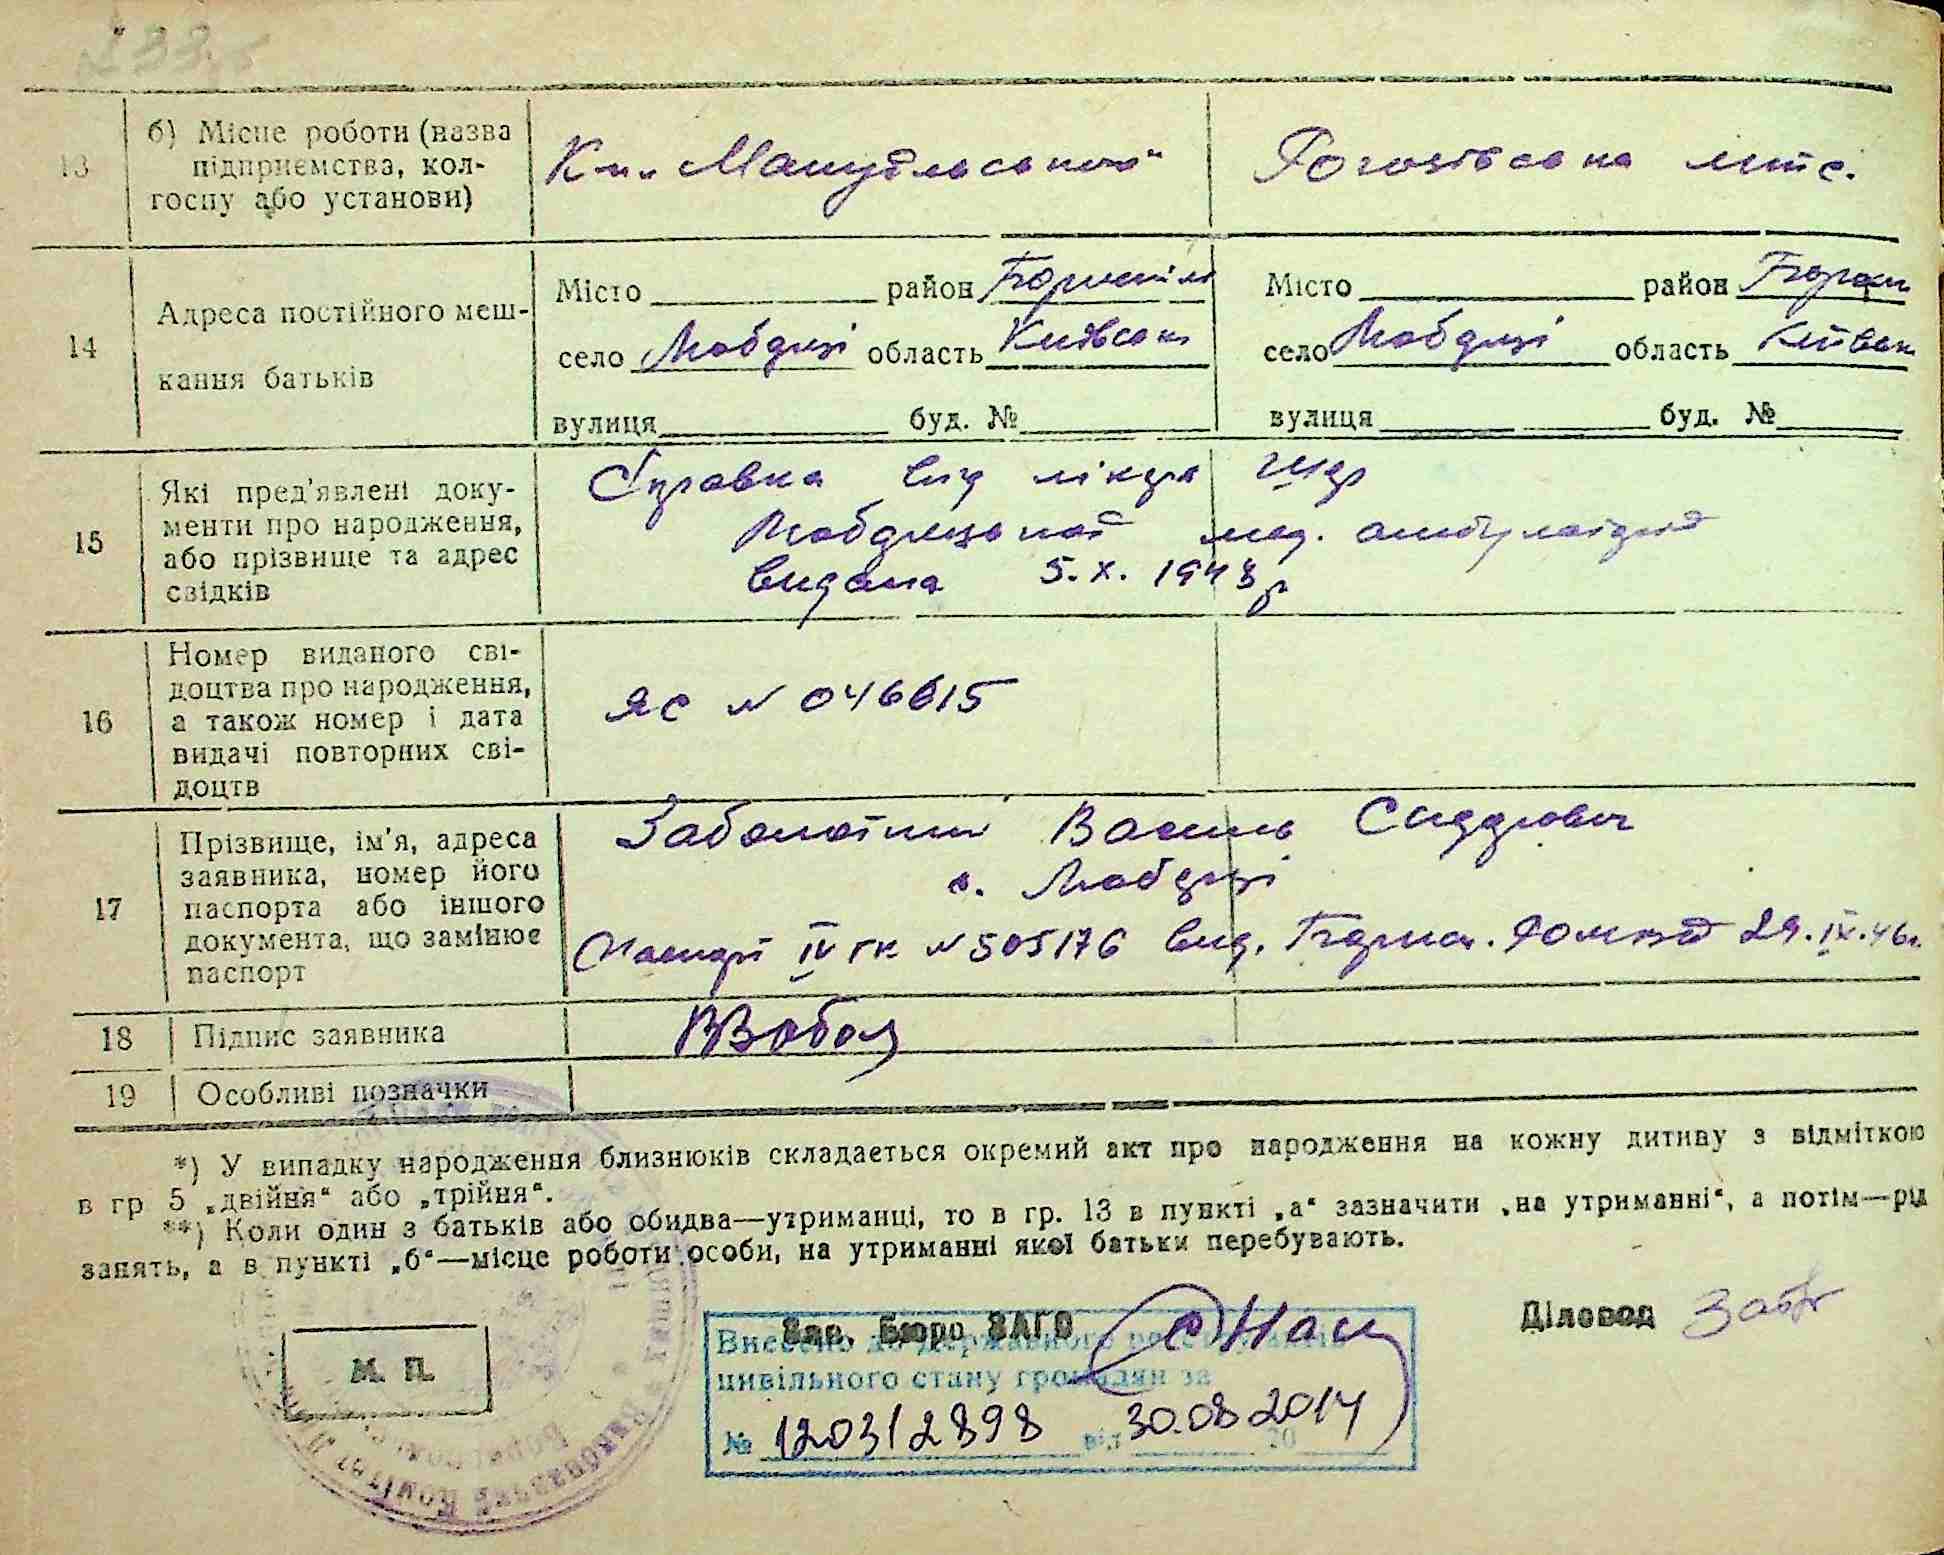 13
б) Місце роботи (назва
підприємства, кол-
госпу або установи)
К-п „Мануїльського“
Рогозівська
14
Адреса постійного меш-
кання батьків
Місто район Бориспіль
село Любарці область Київськ
вулиця буд. №
Місто район Борисп
село Любарці область Київськ
вулиця буд. №
15
Які пред'явлені доку-
менти про народження,
або прізвище та адрес
свідків
Справка від лікаря
Любарецької мед. амбулаторії
видана 5.X. 1948 р
16
Номер виданого сві-
доцтва про народження,
а також номер і дата
видачі повторних сві-
доцтв
ЯС № 046615
17
Прізвище, ім'я, адреса
заявника, номер його
паспорта або іншого
документа, що замінює
паспорт
Заболотний Василь Сидорович
с. Любарці
Паспорт IV ГК № 505176 вид. 29.IX.46 г.
18
Підпис заявника
19
Особливі позначки
*) У випадку народження близнюків складається окремий акт про народження на кожну дитину з відміткою
в гр 5 „двійня“ або „трійня“.
**) Коли один з батьків або обидва—утриманці, то в гр. 13 в пункті „а“ зазначити „на утриманні“, а потім—рід
занять, а в пункті „б“—місце роботи особи, на утриманні якої батьки перебувають.
М. П.
Зав. Бюро ЗАГС
Діловод
Внесено до Державного реєстру актів
цивільного стану громадян за
№ 120312898 від 30.08.2014
Виконавчий Комітет